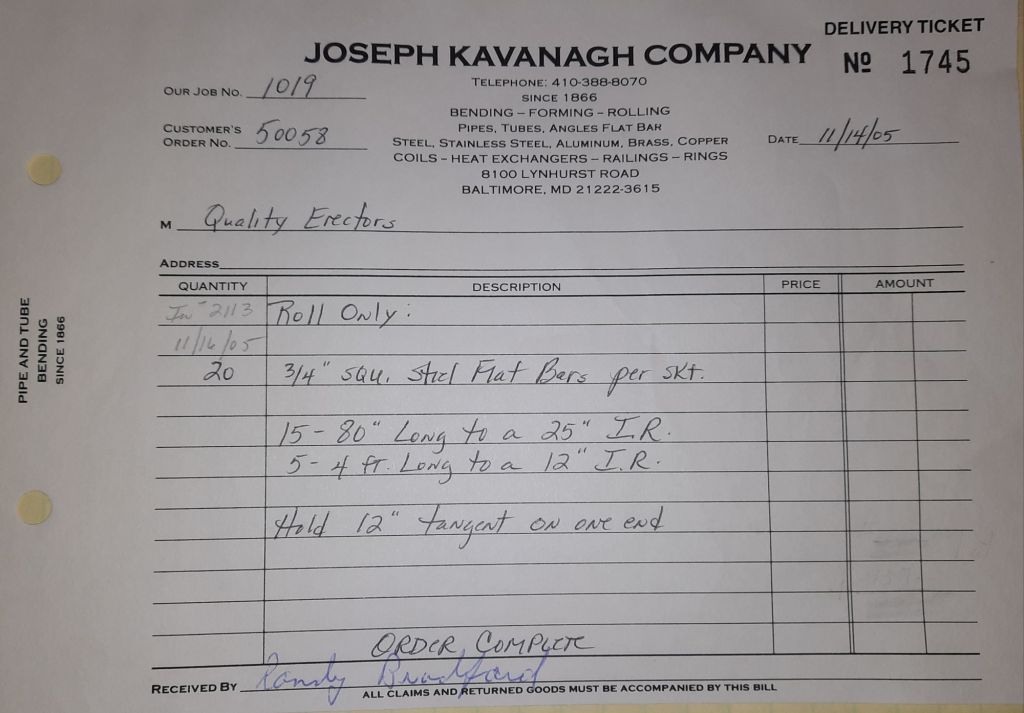 DELIVERY TICKET
JOSEPH KAVANAGH COMPANY
Nº 1745
TELEPHONE: 410-388-8070
SINCE 1866
BENDING – FORMING – ROLLING
PIPES, TUBES, ANGLES FLAT BAR
STEEL, STAINLESS STEEL, ALUMINUM, BRASS, COPPER
COILS – HEAT EXCHANGERS – RAILINGS – RINGS
8100 LYNHURST ROAD
BALTIMORE, MD 21222-3615
OUR JOB NO. 1019
CUSTOMER'S
ORDER NO. 50058
DATE 11/14/05
M Quality Erectors
ADDRESS
QUANTITY DESCRIPTION PRICE AMOUNT
In# 2113 Roll Only:
11/16/05
20 3/4" squ. steel Flat Bars per skt.
15 - 80" Long to a 25" I.R.
5 - 4 ft. Long to a 12" I.R.
Hold 12" tangent on one end
ORDER COMPLETE
RECEIVED BY Randy Bradford
ALL CLAIMS AND RETURNED GOODS MUST BE ACCOMPANIED BY THIS BILL
PIPE AND TUBE
BENDING
SINCE 1866